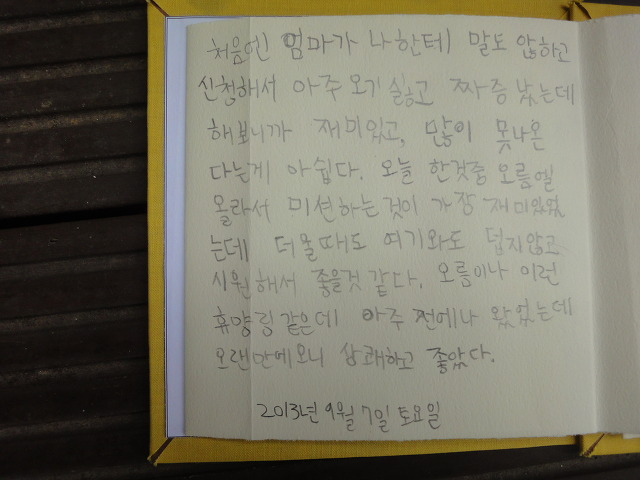 처음엔 엄마가 나한테 말도 않하고
신청해서 아주 오기 싫고 짜증 났는데
해보니까 재미있고, 많이 못나온
다는게 아쉽다. 오늘 한것중 오름엘
올라서 미션하는것이 가장 재미있었
는데 더울때도 여기와도 덥지않고
시원해서 좋을것 같다. 오름이나 이런
휴양림같은데 아주 전에나 왔었는데
오랜만에오니 상쾌하고 좋았다.
2013년 9월 7일 토요일